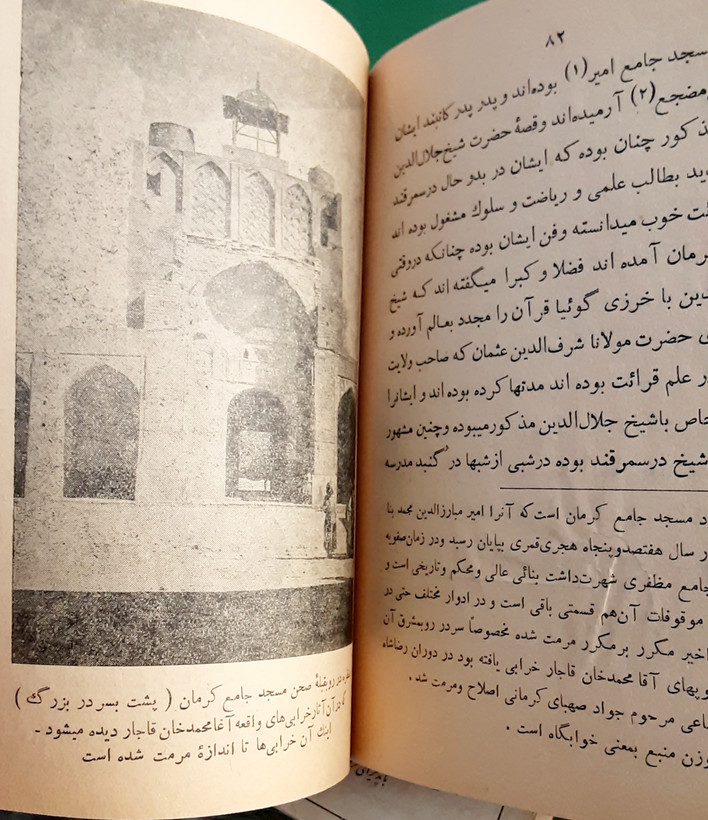 ۸۲
مسجد جامع امیر(۱) بوده‌اند و پدر پدر کاتبند ایشان
مضجع(۲) آرمیده‌اند وقصهٔ حضرت شیخ جلال‌الدین
مذکور چنان بوده که ایشان در بدو حال درسمرقند
بطالب علمی و ریاضت و سلوك مشغول بوده اند
خوب میدانسته وفن ایشان بوده چنانکه دروقتی
آمده اند فضلا و کبرا میگفته اند که شیخ
با خرزی گوئیا قرآن را مجدد بعالم آورده و
حضرت مولانا شرف‌الدین عثمان که صاحب ولایت
در علم قرائت بوده اند مدتها کرده بوده‌اند و ایشانرا
باشیخ جلال‌الدین مذکورمیبوده وچنین مشهور
شیخ درسمرقند بوده درشبی ازشبها در گنبد مدرسه
مسجد جامع کرمان است که آنرا امیر مبارزالدین محمد بنا
سال هفتصدوپنجاه هجری‌قمری بپایان رسید ودر زمان‌صفویه
جامع مظفری شهرت‌داشت بنائی عالی ومحکم وتاریخی است و
موقوفات آن‌هم قسمتی باقی است و در ادوار مختلف حتی در
اخیر مکرر برمکرر مرمت شده مخصوصاً سردر روبمشرق آن
آقا محمدخان قاجار خرابی یافته بود در دوران رضاشاه
مرحوم جواد صهبای کرمانی اصلاح ومرمت شد .
منبع بمعنی خوابگاه است .
روبقبلهٔ صحن مسجد جامع کرمان ( پشت بسردر بزرگ )
که در آن آثار خرابی‌های واقعه آغامحمدخان قاجار دیده میشود -
اینك آن خرابی‌ها تا اندازهٔ مرمت شده است